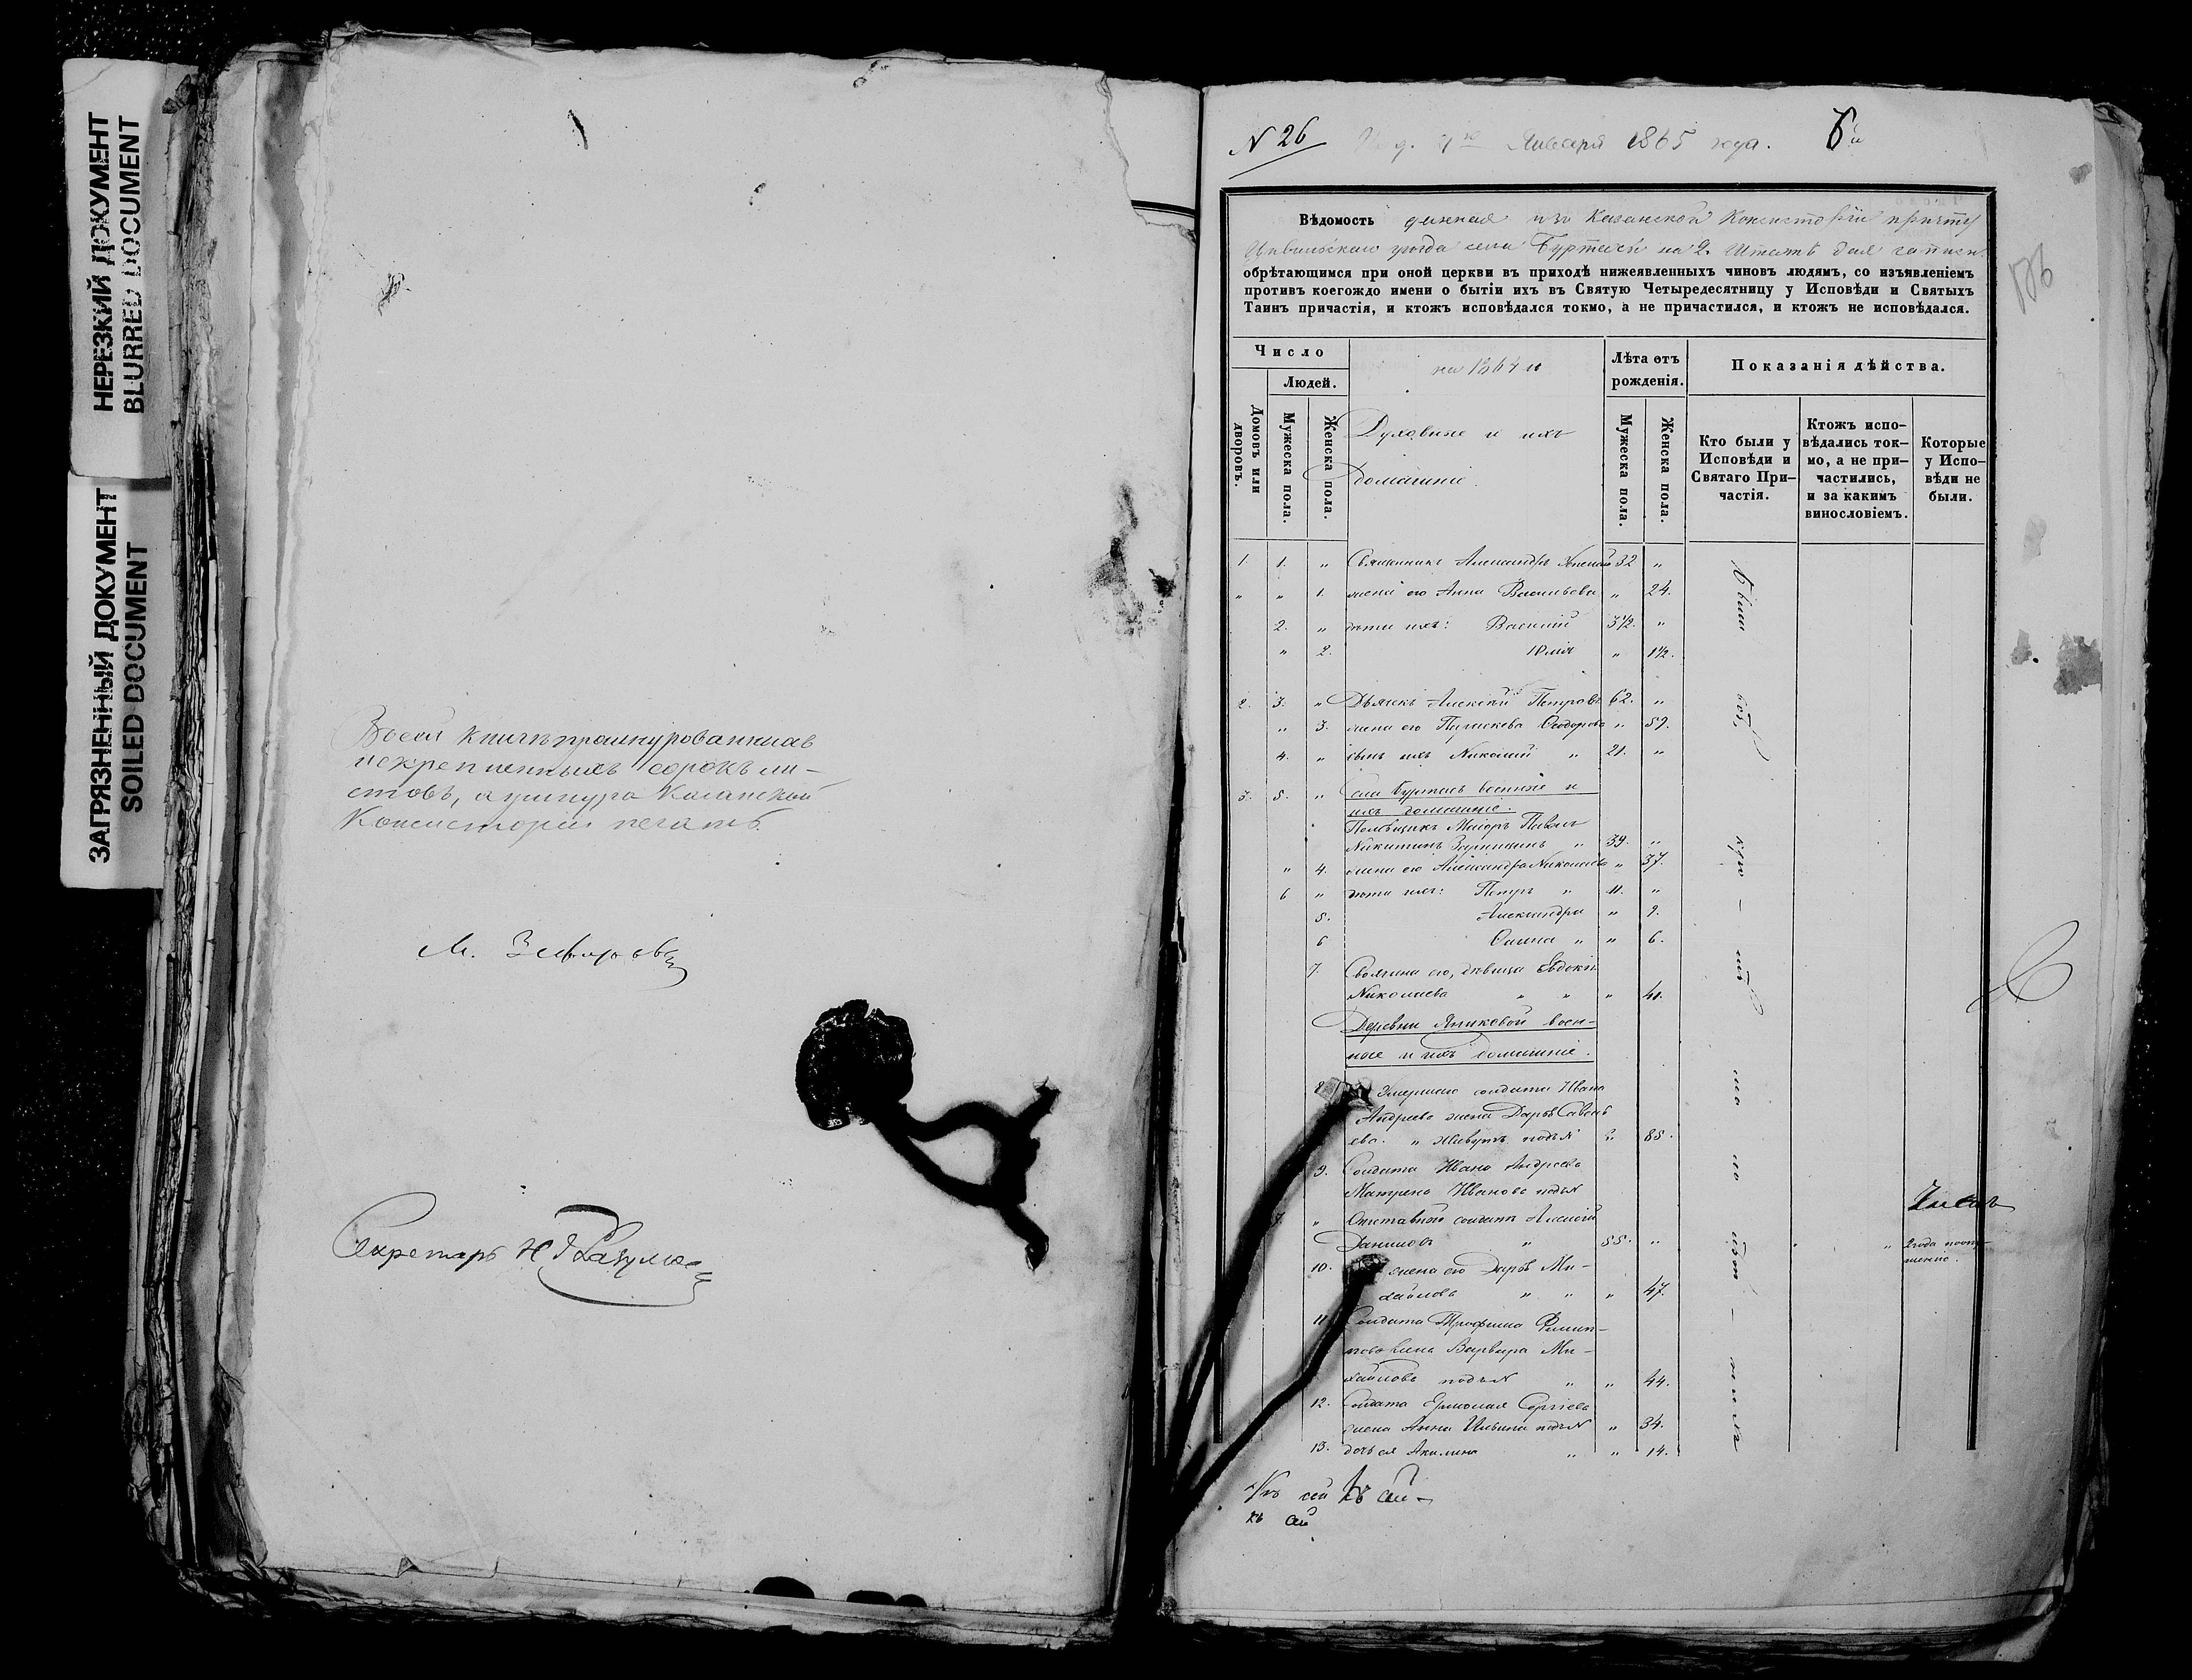 НЕРЕЗКИЙ ДОКУМЕНТ
BLURRED DOCUMENT
ЗАГРЯЗНЕННЫЙ ДОКУМЕНТ
SOILED DOCUMENT
Въ сей книгѣ прошнурованныхъ
и скрепленныхъ сорокъ ли-
стовъ, а у шнура Казанской
Консисторіи печать.
М. Зефировъ
Секретарь
N 26
Января 1865 года.
Вѣдомость данная изъ Казанской Консисторіи причту
Цивильскаго уѣзда села Буртасы на 2. Штатъ для записи
обрѣтающимся при оной церкви въ приходѣ нижеявленныхъ чиновъ людямъ, со изъявленіемъ
противъ коегождо имени о бытіи ихъ въ Святую Четыредесятницу у Исповѣди и Святыхъ
Таинъ причастія, и ктожъ исповѣдался токмо, а не причастился, и ктожъ не исповѣдался.
Число
Людей.
Домовъ или дворовъ.
Мужеска пола.
Женска пола.
на 1864 й
Духовные и ихъ
домашніе.
Лѣта отъ
рожденія.
Мужеска пола.
Женска пола.
Показанія дѣйства.
Кто были у
Исповѣди и
Святаго При-
частія.
Ктожъ испо-
вѣдались ток-
мо, а не при-
частились,
и за какимъ
винословіемъ.
Которые
у Испо-
вѣди не
были.
1. 1. " Священникъ Александръ 32 "
" " 1. жена его Анна Васильева " 24.
2. " дѣти ихъ: Василій 3½. "
" 2. Юлія " 1½.
2. 3. " Дьячекъ Алексѣй Петровъ 62. "
" 3. жена его Пульхева Ѳеодорова " 59.
4. " сынъ ихъ Николай " 21. "
3. 5. " Села Буртасъ военные и
ихъ домашніе.
Маіоръ Павелъ
Никитинъ " 39. "
" 4. жена его Александра Николаева " 37.
6 " дѣти ихъ: Петръ " 11. "
5. Александра " 9.
6 Елена " " 6.
7. Своячина его, дѣвица Евдокія
Николаева " " " 40.
Деревни Яниковой воен-
ные и ихъ домашніе.
8. Умершаго солдата Ивана
Андреева жена Дарья Савель
ева. " 85.
9. Солдата Ивана Андреева
Матрена Иванова
" Отставной солдатъ Алексѣй
Даниловъ " 55. " " 2 года
10. жена его Дарья Ми-
хайлова " " " 47.
11. Солдата Трофима Филип-
пова жена Варвара Ми-
хайлова " " 44.
12. Солдата Ермолая Сергіева
жена Анна Ильина " 34.
13. дочь ея Акилина " " 14.